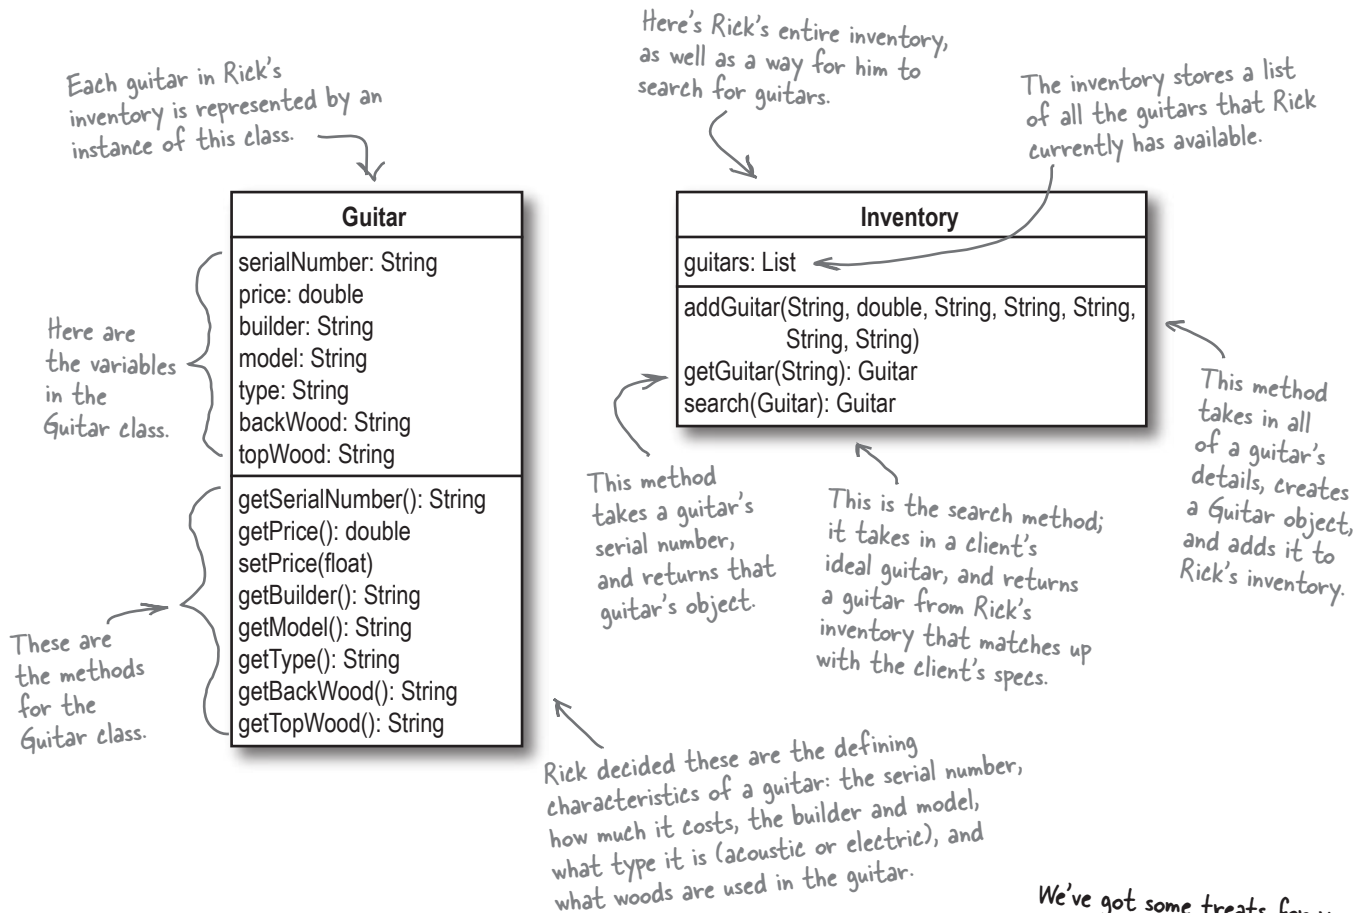 Each guitar in Rick's
inventory is represented by an
instance of this class.
Here's Rick's entire inventory,
as well as a way for him to
search for guitars.
The inventory stores a list
of all the guitars that Rick
currently has available.
Guitar
serialNumber: String
price: double
builder: String
model: String
type: String
backWood: String
topWood: String
getSerialNumber(): String
getPrice(): double
setPrice(float)
getBuilder(): String
getModel(): String
getType(): String
getBackWood(): String
getTopWood(): String
Here are
the variables
in the
Guitar class.
These are
the methods
for the
Guitar class.
Inventory
guitars: List
addGuitar(String, double, String, String, String,
String, String)
getGuitar(String): Guitar
search(Guitar): Guitar
This method
takes a guitar's
serial number,
and returns that
guitar's object.
This is the search method;
it takes in a client's
ideal guitar, and returns
a guitar from Rick's
inventory that matches up
with the client's specs.
This method
takes in all
of a guitar's
details, creates
a Guitar object,
and adds it to
Rick's inventory.
Rick decided these are the defining
characteristics of a guitar: the serial number,
how much it costs, the builder and model,
what type it is (acoustic or electric), and
what woods are used in the guitar.
We've got some treats for